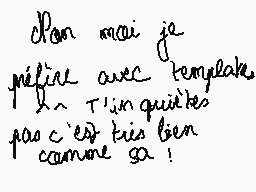 Non moi je
préfère avec template
^^ T'inquiètes
pas c'est très bien
comme ça !